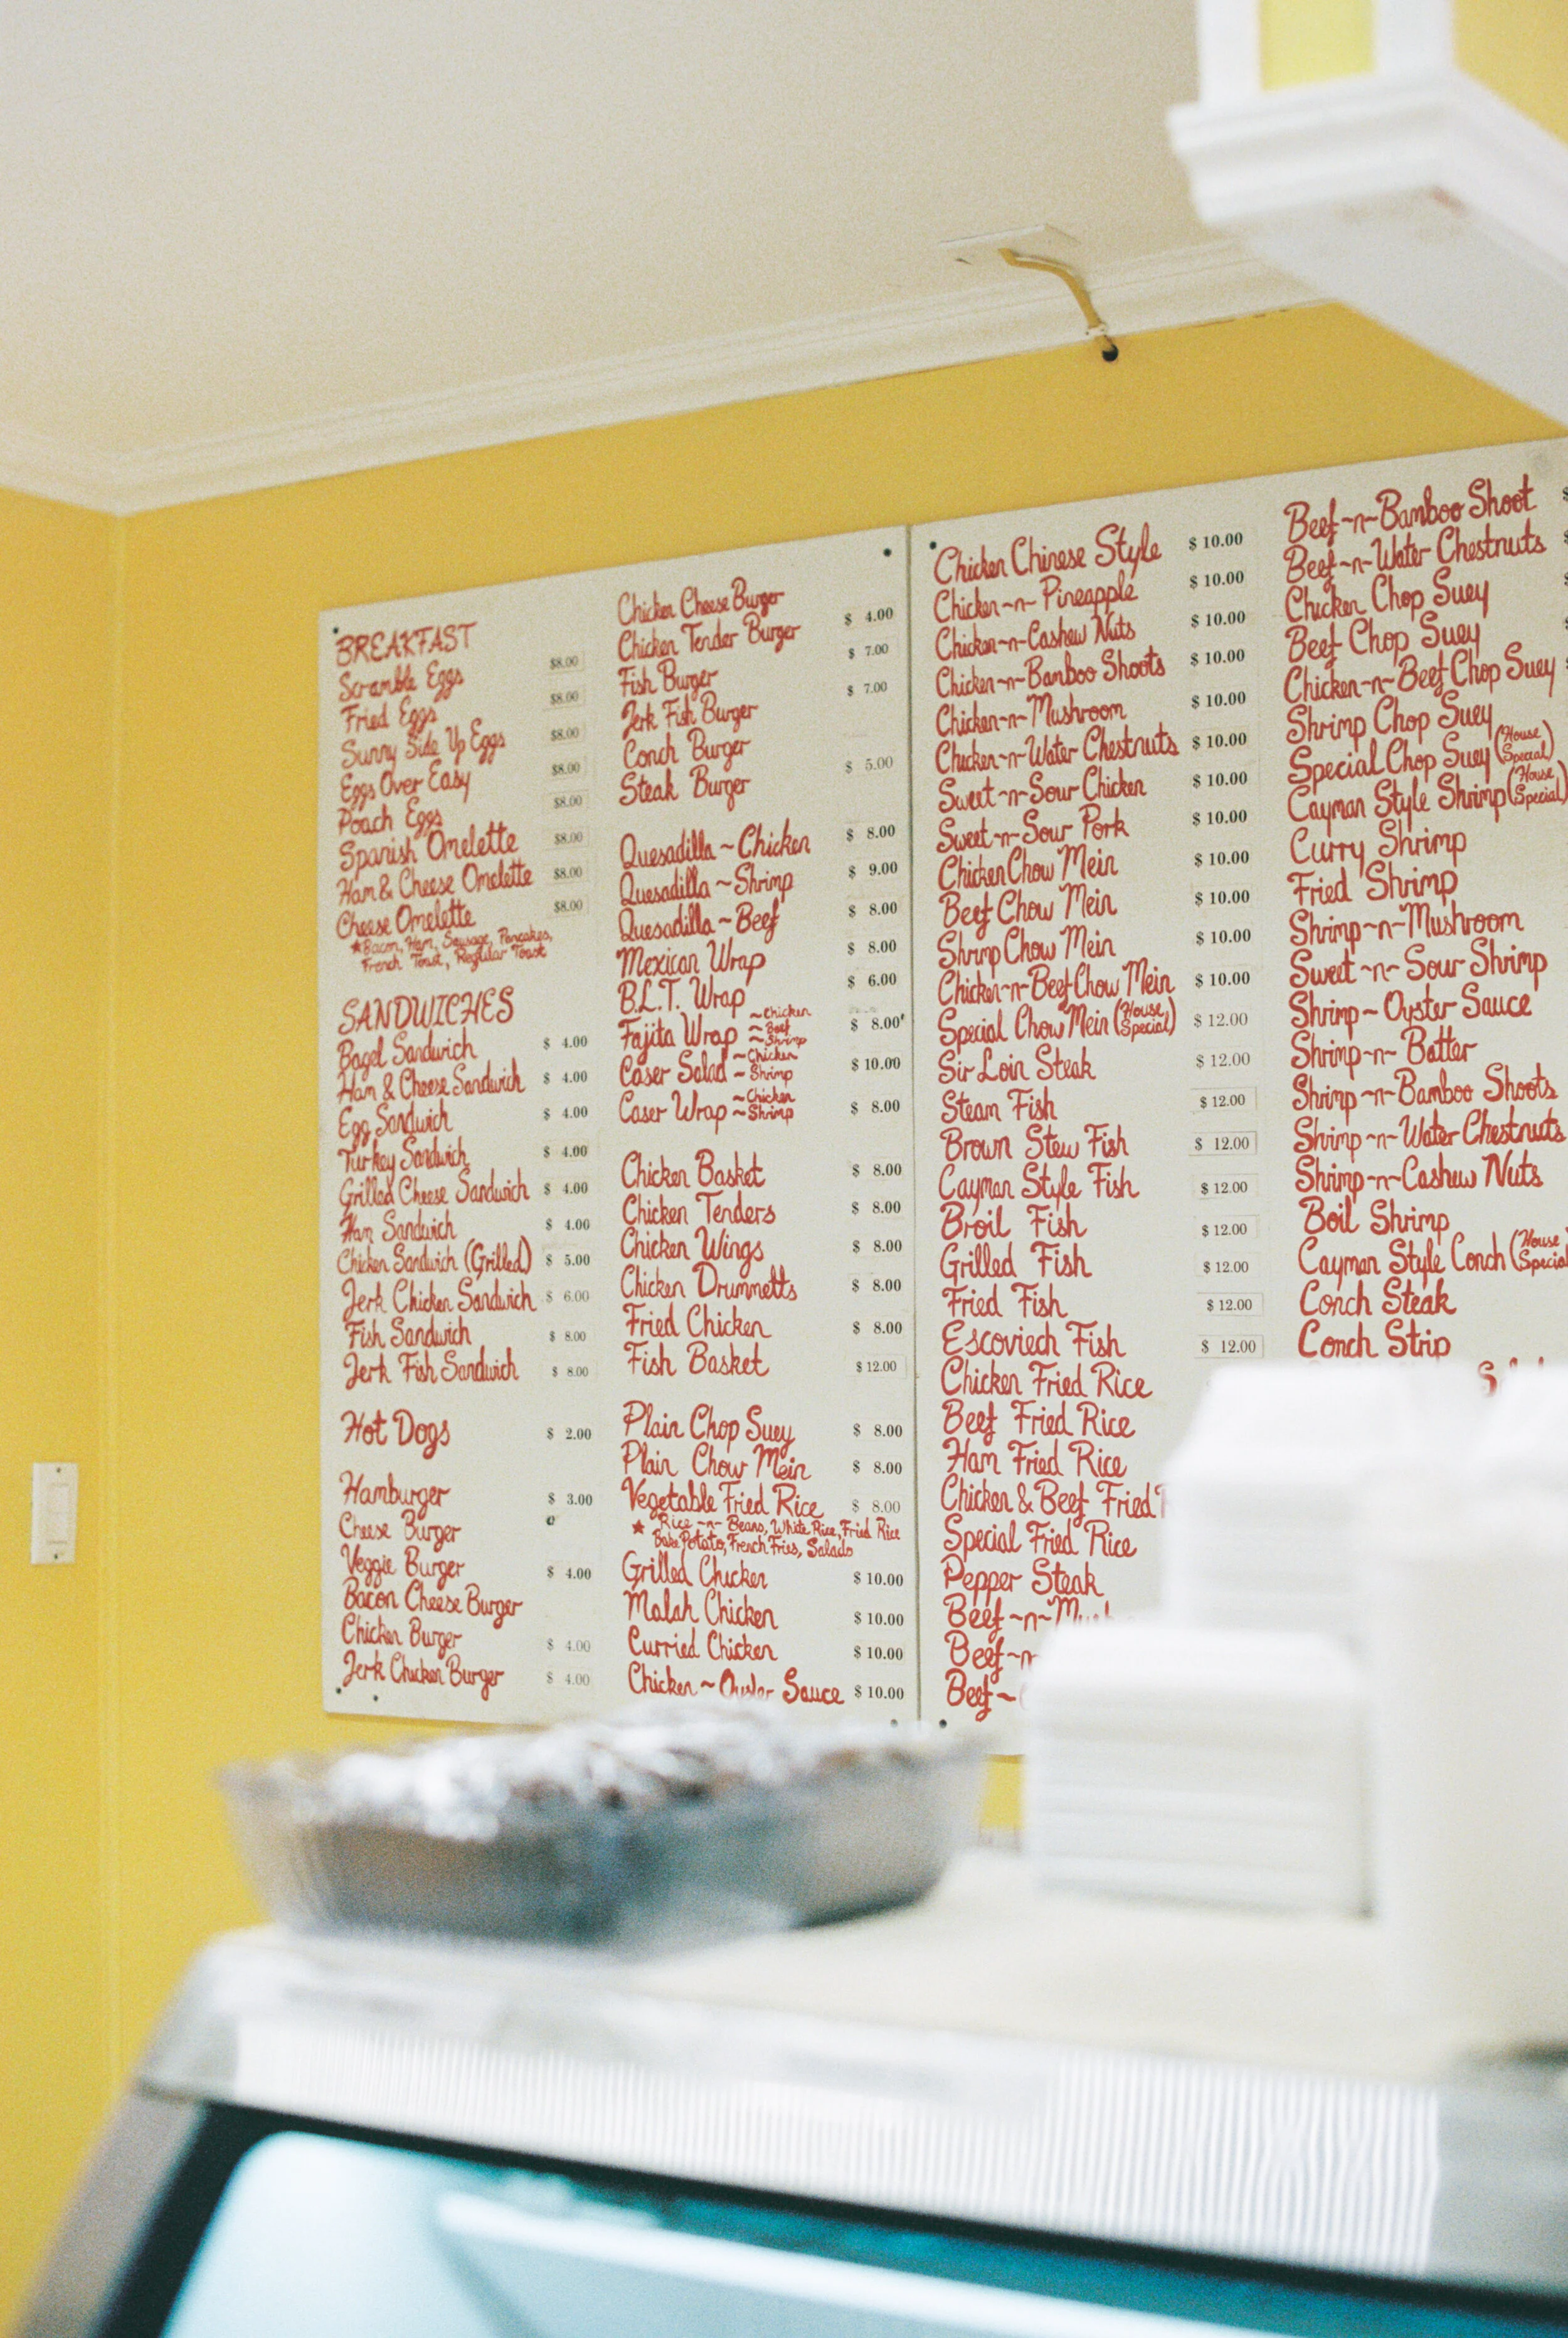 BREAKFAST
Scramble Eggs $8.00
Fried Eggs $8.00
Sunny Side Up Eggs $8.00
Eggs Over Easy $8.00
Poach Eggs $8.00
Spanish Omelette $8.00
Ham & Cheese Omelette $8.00
Cheese Omelette $8.00
★Bacon, Ham, Sausage, Pancakes,
French Toast, Regular Toast
SANDWICHES
Bagel Sandwich $ 4.00
Ham & Cheese Sandwich $ 4.00
Egg Sandwich $ 4.00
Turkey Sandwich $ 4.00
Grilled Cheese Sandwich $ 4.00
Ham Sandwich $ 4.00
Chicken Sandwich (Grilled) $ 5.00
Jerk Chicken Sandwich $ 6.00
Fish Sandwich $ 8.00
Jerk Fish Sandwich $ 8.00
Hot Dogs $ 2.00
Hamburger $ 3.00
Cheese Burger
Veggie Burger $ 4.00
Bacon Cheese Burger
Chicken Burger $ 4.00
Jerk Chicken Burger $ 4.00
Chicken Cheese Burger $ 4.00
Chicken Tender Burger $ 7.00
Fish Burger $ 7.00
Jerk Fish Burger
Conch Burger $ 5.00
Steak Burger
Quesadilla ~ Chicken $ 8.00
Quesadilla ~ Shrimp $ 9.00
Quesadilla ~ Beef $ 8.00
Mexican Wrap $ 8.00
B.L.T. Wrap $ 6.00
Fajita Wrap ~Chicken ~Beef ~Shrimp $ 8.00
Caser Salad ~Chicken ~Shrimp $ 10.00
Caser Wrap ~Chicken ~Shrimp $ 8.00
Chicken Basket $ 8.00
Chicken Tenders $ 8.00
Chicken Wings $ 8.00
Chicken Drummetts $ 8.00
Fried Chicken $ 8.00
Fish Basket $ 12.00
Plain Chop Suey $ 8.00
Plain Chow Mein $ 8.00
Vegetable Fried Rice $ 8.00
★ Rice -n- Beans, White Rice, Fried Rice
Bake Potato, French Fries, Salads
Grilled Chicken $ 10.00
Malah Chicken $ 10.00
Curried Chicken $ 10.00
Chicken ~ Oyster Sauce $ 10.00
Chicken Chinese Style $ 10.00
Chicken ~n~ Pineapple $ 10.00
Chicken ~n~ Cashew Nuts $ 10.00
Chicken ~n~ Bamboo Shoots $ 10.00
Chicken ~n~ Mushroom $ 10.00
Chicken ~n~ Water Chestnuts $ 10.00
Sweet ~n~ Sour Chicken $ 10.00
Sweet ~n~ Sour Pork $ 10.00
Chicken Chow Mein $ 10.00
Beef Chow Mein $ 10.00
Shrimp Chow Mein $ 10.00
Chicken ~n~ Beef Chow Mein $ 10.00
Special Chow Mein (House Special) $ 12.00
Sir Loin Steak $ 12.00
Steam Fish $ 12.00
Brown Stew Fish $ 12.00
Cayman Style Fish $ 12.00
Broil Fish $ 12.00
Grilled Fish $ 12.00
Fried Fish $ 12.00
Escoviech Fish $ 12.00
Chicken Fried Rice
Beef Fried Rice
Ham Fried Rice
Chicken & Beef Fried
Special Fried Rice
Pepper Steak
Beef ~n~
Beef ~n
Beef ~
Beef ~n~ Bamboo Shoot
Beef ~n~ Water Chestnuts
Chicken Chop Suey
Beef Chop Suey
Chicken ~n~ Beef Chop Suey
Shrimp Chop Suey
Special Chop Suey (House Special)
Cayman Style Shrimp (House Special)
Curry Shrimp
Fried Shrimp
Shrimp ~n~ Mushroom
Sweet ~n~ Sour Shrimp
Shrimp ~ Oyster Sauce
Shrimp ~n~ Batter
Shrimp ~n~ Bamboo Shoots
Shrimp ~n~ Water Chestnuts
Shrimp ~n~ Cashew Nuts
Boil Shrimp
Cayman Style Conch (House Special
Conch Steak
Conch Strip